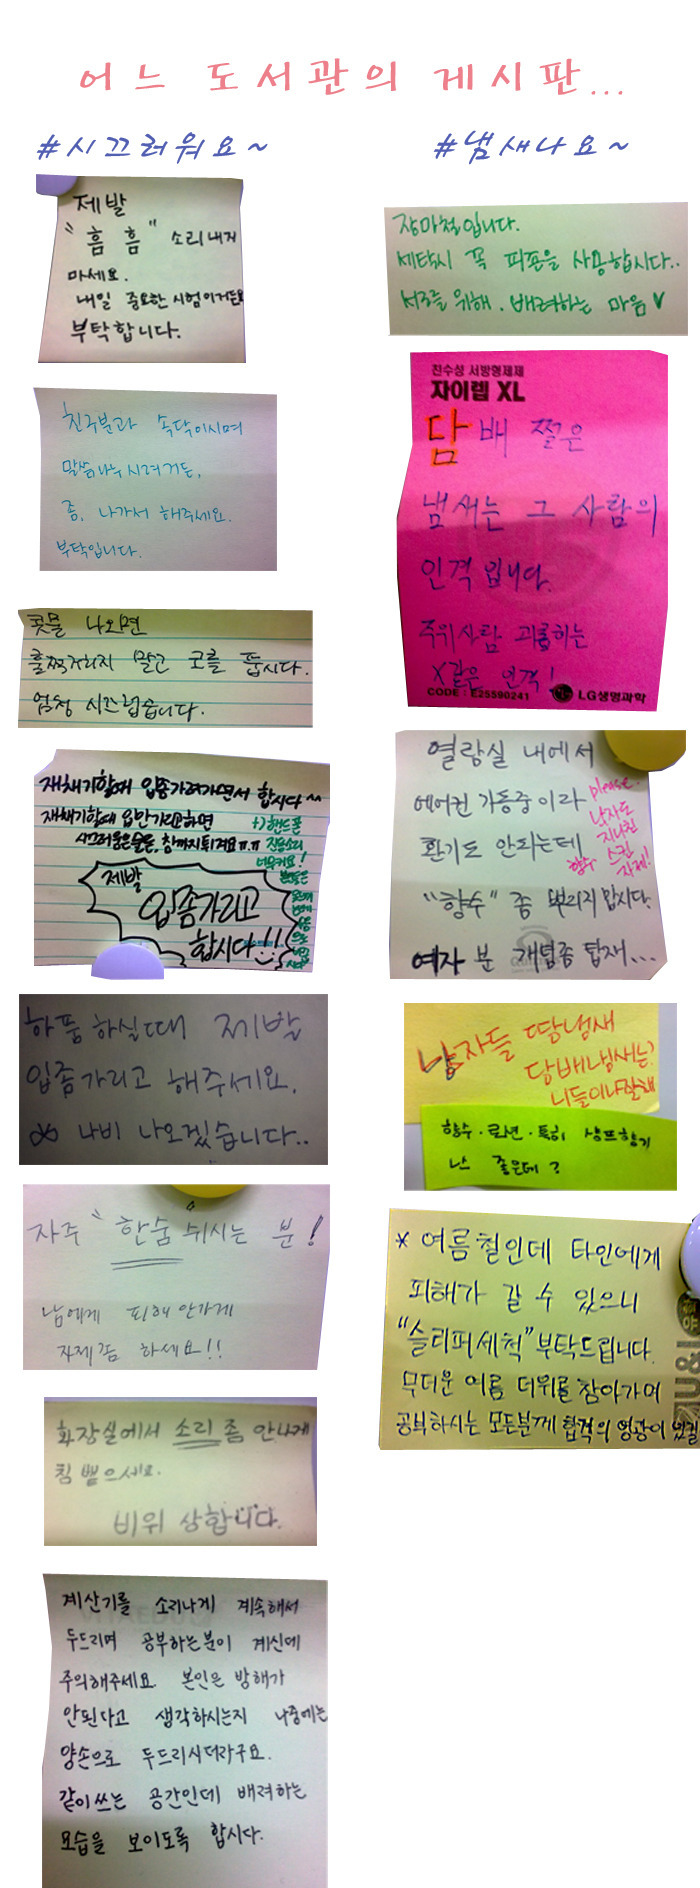 어느 도서관의 게시판...
#시끄러워요~
제발
"흠 흠" 소리내지
마세요.
내일 중요한 시험이거든요
부탁합니다.
친구분과 속닥이시며
말씀나누시려거든,
좀, 나가서 해주세요.
부탁입니다.
콧물 나오면
훌쩍거리지 말고 코를 풉시다.
엄청 시끄럽습니다.
재채기할때 입좀가려가면서 합시다^^
재채기할때 입안가리고하면
시끄러운은물론, 침까지튀겨요ㅠ.ㅠ
+) 핸드폰
진동소리
너무커요!
제발
입좀가리고
합시다!!
하품 하실때 제발
입좀가리고 해주세요.
나비 나오겠습니다..
자주 "한숨" 쉬시는 분!
남에게 피해 안가게
자제좀 하세요!!
화장실에서 소리좀 안나게
침 뱉으세요.
비위 상합니다.
계산기를 소리나게 계속해서
두드리며 공부하는분이 계신데
주의해주세요. 본인은 방해가
안된다고 생각하시는지 나중에는
양손으로 두드리시더라구요.
같이쓰는 공간인데 배려하는
모습을 보이도록 합시다.
#냄새나요~
장마철입니다.
세탁시 꼭 피죤을 사용합시다..
서로를 위해. 배려하는 마음♥
친수성 서방형제제
자이렙 XL
담배 쩔은
냄새는 그 사람의
인격입니다.
주위사람 괴롭히는
X같은 인격!
CODE : E25590241
LG생명과학
열람실 내에서
에어컨 가동중이라
환기도 안되는데
"향수" 좀 뿌리지맙시다.
여자분 개념좀 탑재...
please.
남자도
지나친
향수 스킨
자제!
남자들 땀냄새
담배냄새는?
니들이나잘해
향수·로션·특히 샴프향기
난 좋은데?
* 여름철인데 타인에게
피해가 갈 수 있으니
"슬리퍼세척" 부탁드립니다.
무더운 여름 더위를 참아가며
공부하시는 모든분께 합격의 영광이 있길